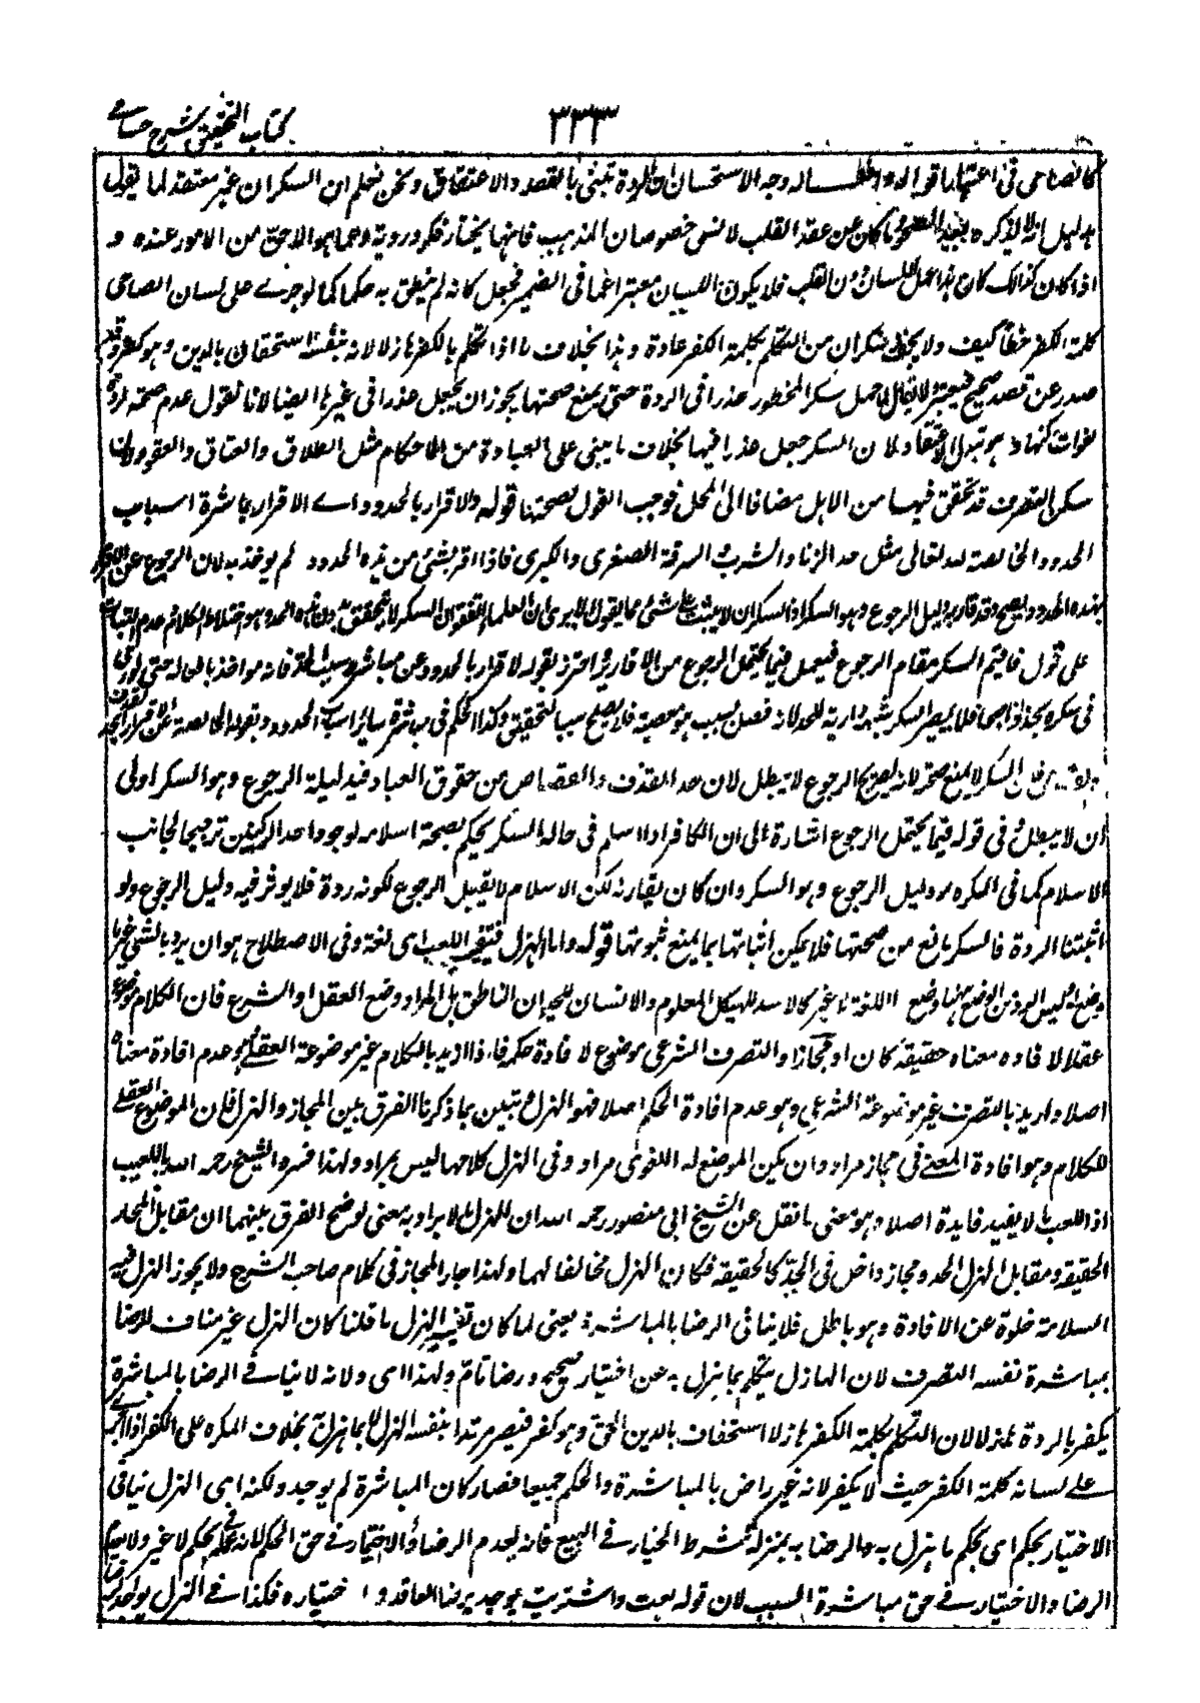 كتاب التحقيق شرح حسامي
٣٣٣
كالصاحي في اعتبار اقواله وافعاله وجه الاستحسان ان الردة تبتني بالقصد والاعتقاد ونحن نعلم ان السكران غير معتقد لما يقول
بدليل انه لا يذكره بعد الصحو وما كان عن عقد القلب لا ينسى خصوصا المذهب فانها يختار فكر وروية وعما هو الاحق من الامور عنده و
اذا كان كذلك كان هذا عمل اللسان دون القلب فلا يكون اللسان معتبرا عما في الضمير فجعل كانه لم ينطق به حكما كما لو جرى على لسان الصاحي
كلمة الكفر خطأ كيف ولا ينجو سكران من التكلم بكلمة الكفر عادة وهذا بخلاف ما اذا تكلم بالكفر هازلا لانه بنفسه استخفاف بالدين وهو كفر وقد
صدر عن قصد صحيح فيعتبر ولا يقال لما جعل سكر المحظور عذرا في الردة حتى يمنع صحتها يجوز ان يجعل عذرا في غيرها ايضا لانا نقول عدم صحة الردة
لفوات ركنها وهو تبدل الاعتقاد لا ان السكر جعل عذرا فيها بخلاف ما يبتنى على العبادة من الاحكام مثل الطلاق والعتاق والعقود لان
ركن التصرف قد تحقق فيها من الاهل مضافا الى المحل فوجب القول بصحتها قوله والاقرار بالحدود اے الاقرار بمباشرة اسباب
الحدود الخالصة لله تعالى مثل حد الزنا والشرب والسرقة الصغرى والكبرى فاذا اقر بشئ من هذه الحدود لم يوخذ به لان الرجوع عن الاقرار
بهذه الحدود يصح وقد قارنه دليل الرجوع وهو السكر اذ السكران لا يثبت على شئ مما يقول الا يرى ان العلماء اتفقوا ان السكر لا يتحقق بدون هذه الحد وهو اختلاط الكلام وعدم الثبات
على قول فاقيم السكر مقام الرجوع فيعمل فيما يحتمل الرجوع من الاقارير واحترز بقوله الاقرار بالحدود عن مباشرة سبب الحد فانه مواخذ بالحد حتى لو زنى
في سكره يحد اذا صحا فلا يصير السكر شبهة دارية للحد لانه فعل بسبب هو معصية فلا يصلح سببا للتخفيف وكذا الحكم في مباشرة سائر اسباب الحدود وبقوله الخالصة عن الاقرار بحد القذف
فان السكر لا يمنع صحته لان صريح الرجوع لا يبطل لان حد القذف والقصاص من حقوق العباد فبدليله الرجوع وهو السكر اولى
ان لا يبطل وفي قوله فيما يحتمل الرجوع اشارة الى ان الكافر اذا اسلم في حالة السكر يحكم بصحة اسلامه لوجود احد الركنين ترجيحا لجانب
الاسلام كما في المكره ودليل الرجوع وهو السكر وان كان يقارنه لكن الاسلام لا يقبل الرجوع لكونه ردة فلا يوثر فيه دليل الرجوع ولو
اثبتنا الردة فالسكر مانع من صحتها فلا يمكن اثباتها بما يمنع ثبوتها قوله واما الهزل فتفسيره اللعب اى لغة وفى الاصطلاح هو ان يراد بالشئ غير ما
وضع له وليس المراد من الوضع ههنا وضع اللغة لا غير كالاسد للهيكل المعلوم والانسان للحيوان الناطق بل المراد وضع العقل او الشرع فان الكلام موضوع
عقلا لافادة معناه حقيقة كان او مجازا والتصرف الشرعي موضوع لافادة حكمه فاذا اريد بالكلام غير موضوعه العقلے وهو عدم افادة معناه
اصلا واريد بالتصرف غير موضوعه الشرعي وهو عدم افادة الحكم اصلا فهو الهزل وتبين بما ذكرنا الفرق بين المجاز والهزل فان الموضوع العقلے
للكلام وهو افادة المعنے في مجاز مراد وان لم يكن الموضع له اللغوي مراد وفي الهزل كلاهما ليس بمراد ولهذا فسره الشيخ رحمه الله باللعب
اذ اللعب ما لا يفيد فايدة اصلا وهو معنى ما نقل عن الشيخ ابي منصور رحمه الله ان الهزل ما لا يراد به معنى يوضح الفرق بينهما ان مقابل المجاز
الحقيقة ومقابل الهزل الجد ومجاز داخل في الجد كالحقيقة فكان الهزل مخالفا لهما ولهذا جاز المجاز في كلام صاحب الشرع ولا يجوز الهزل فيه
السلامة خلوة عن الافادة وهو باطل فلا ينافي الرضا بالمباشرة يعنى لما كان تفسير الهزل ما قلنا كان الهزل غير مناف للرضا
بمباشرة نفسه التصرف لان الهازل يتكلم بما يهزل به عن اختيار صحيح ورضا تام ولهذا اى ولانه لا ينافے الرضا بالمباشرة
يكفر بالردة هازلا لان التكلم بكلمة الكفر هازلا استخفاف بالدين الحق وهو كفر فيصير مرتدا بنفس الهزل لا بما هزل به بخلاف المكره على الكفر اذا اجرى
علے لسانه كلمة الكفر حيث لا يكفر لانه غير راض بالمباشرة والحكم جميعا فصار كان المباشرة لم يوجد ولكنه اى الهزل ينافي
الاختيار بحكم اى بحكم ما يهزل به والرضا به بمنزلة شرط الخيار في البيع فانه يعدم الرضا والاختيار في حق الحكم لانه يخل بحكم لا غير ولا يعدم
الرضا والاختيار في حق مباشرة السبب لان قوله بعت واشتريت يوجد برضا العاقد واختياره فكذا في الهزل يوجد